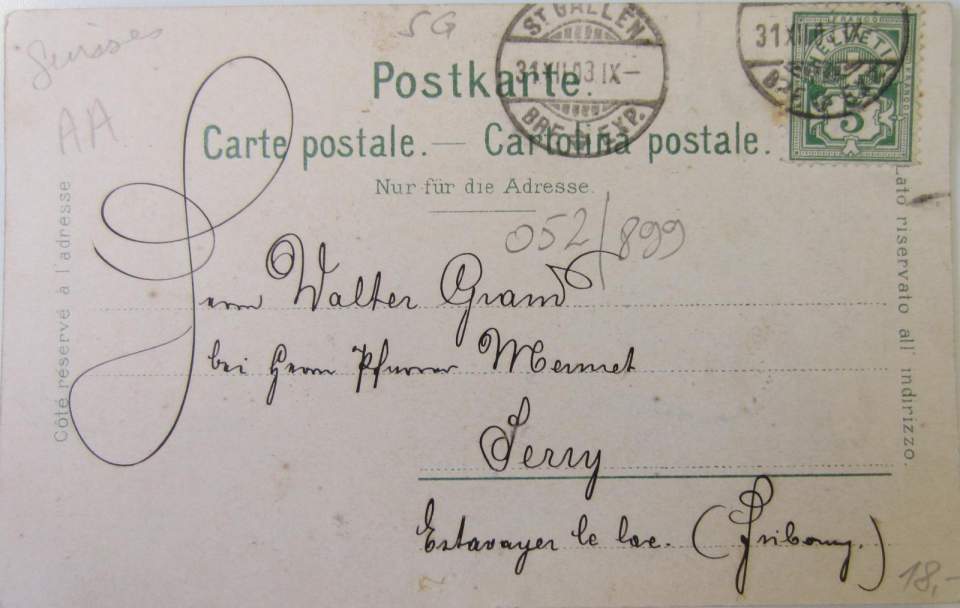 Suisses
SG
AA
ST. GALLEN
31.XII.03.IX-
BRF. EXP.
31.XII
IX
FRANCO
HELVETIA
5
Postkarte.
Carte postale. — Cartolina postale.
Nur für die Adresse.
052/899
Côté réservé à l'adresse
Lato riservato all' indirizzo.
Herrn Walter Grand
bei Herrn Pfarrer Mermet
Ferry
Estavayer le lac. (Fribourg.)
18,-